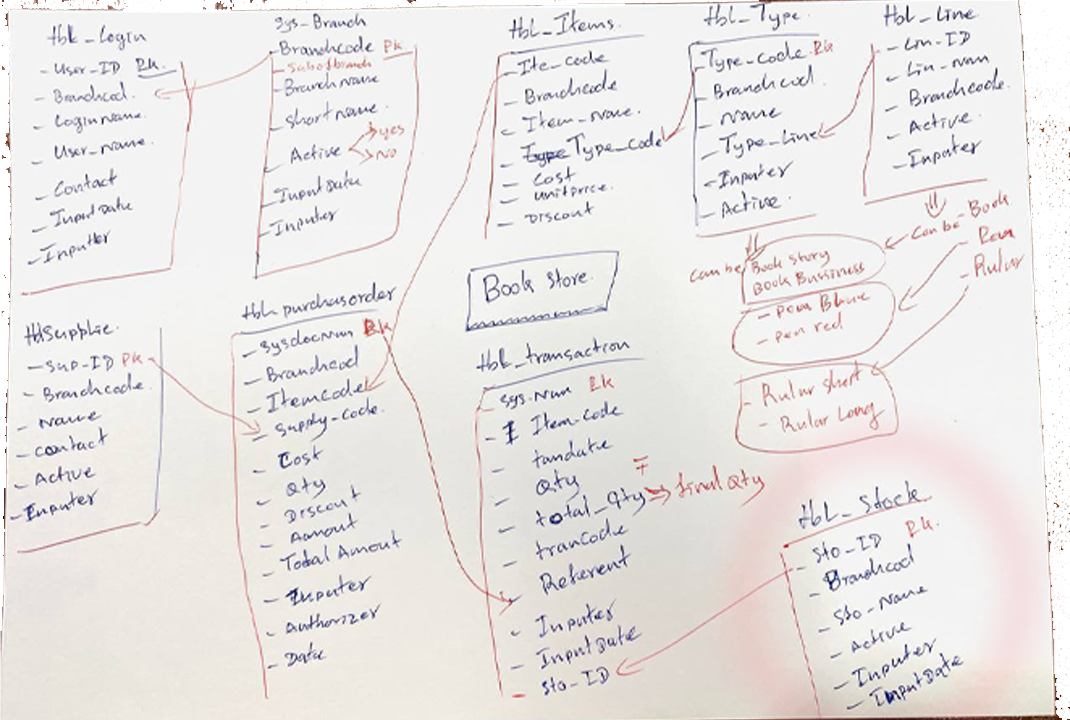 tbl_Login
- User_ID Pk.
- Branchcod.
- Login name.
- User_name.
- Contact
- Input Date
- Inputter
Sys_Branch
- Branchcode Pk
- Subofbranch
- Branch name
- Short name.
- Active yes
No
- Input Data
- Inputer
tbl_Items.
- Ite_code
- Branchcode
- Item_name.
- Type Type_code
- Cost
- unitprice.
- Discout
tbl_Type.
- Type_code Pk
- Branchcod.
- Name
- Type_Line
- Inputer
- Active.
tbl_Line
- Lin_ID
- Lin_nam
- Branchcode.
- Active.
- Inputer
can be
Book Story
Book Bussiness
can be - Book
- Pen
- Rular
- pen Blue
- pen red
- Rular short
- Rular Long
Book Store.
tblSupplie.
- Sup_ID Pk
- Branchcode.
- Name
- contact
- Active
- Inputer
tbl_purchasorder
- Sysdocnum Pk
- Branchcod
- Itemcode
- Supply-Code.
- Cost
- Qty
- Discout
- Aamout
- Total Amout
- Inputer
- Authorizer
- Date
tbl_transaction
- Sys.Num Pk
- I Item-Code
- trandate
- Qty
- total_Qty ⇒ final Qty
- tranCode
- Referent
- Inputer
- Input Date
- Sto_ID
tbl_Stock
- Sto_ID Pk.
- Branchcod
- Sto_Name
- Active
- Inputer
- Input Date